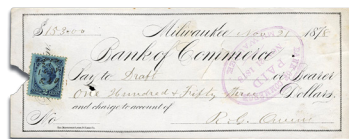 $153.00 Milwaukee Nov 21 1878
Bank of Commerce
Pay to Draft or Bearer
One Hundred & Fifty Three Dollars,
and charge to account of
R. G. Owens